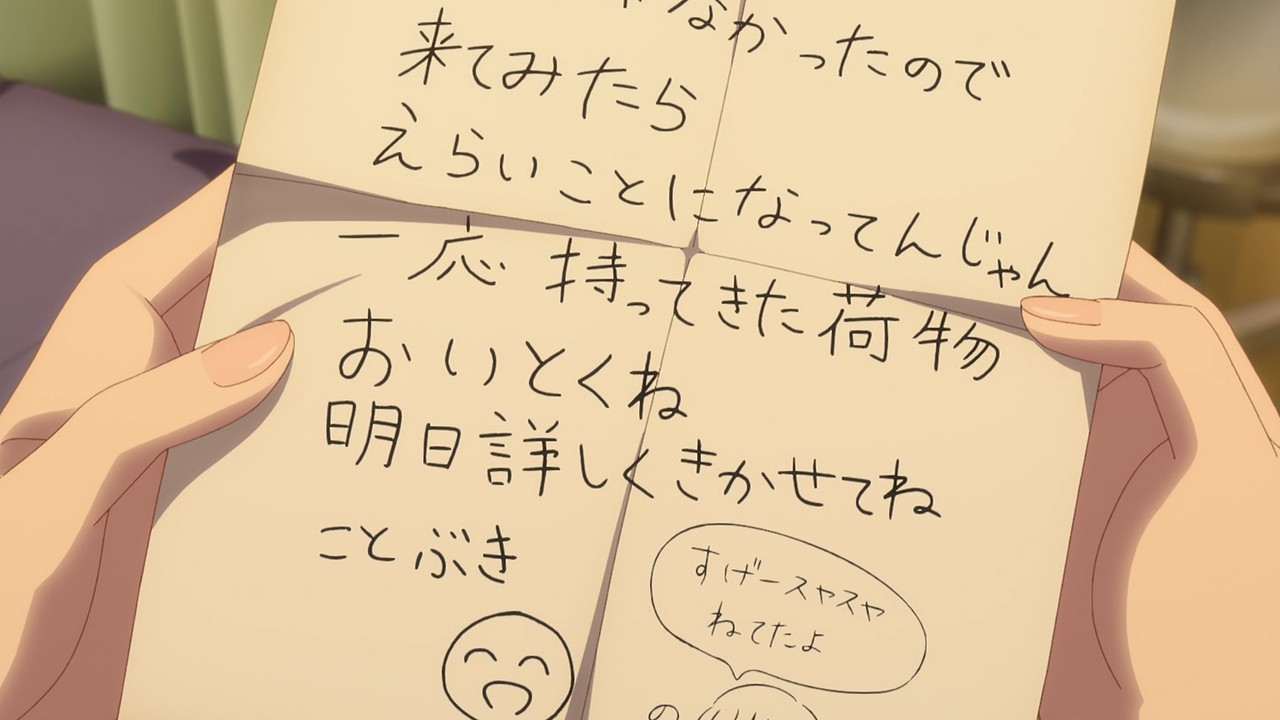 なかったので
来てみたら
えらいことになってんじゃん
一応 持ってきた荷物
おいとくね
明日詳しくきかせてね
ことぶき
すげースヤスヤ
ねてたよ
の